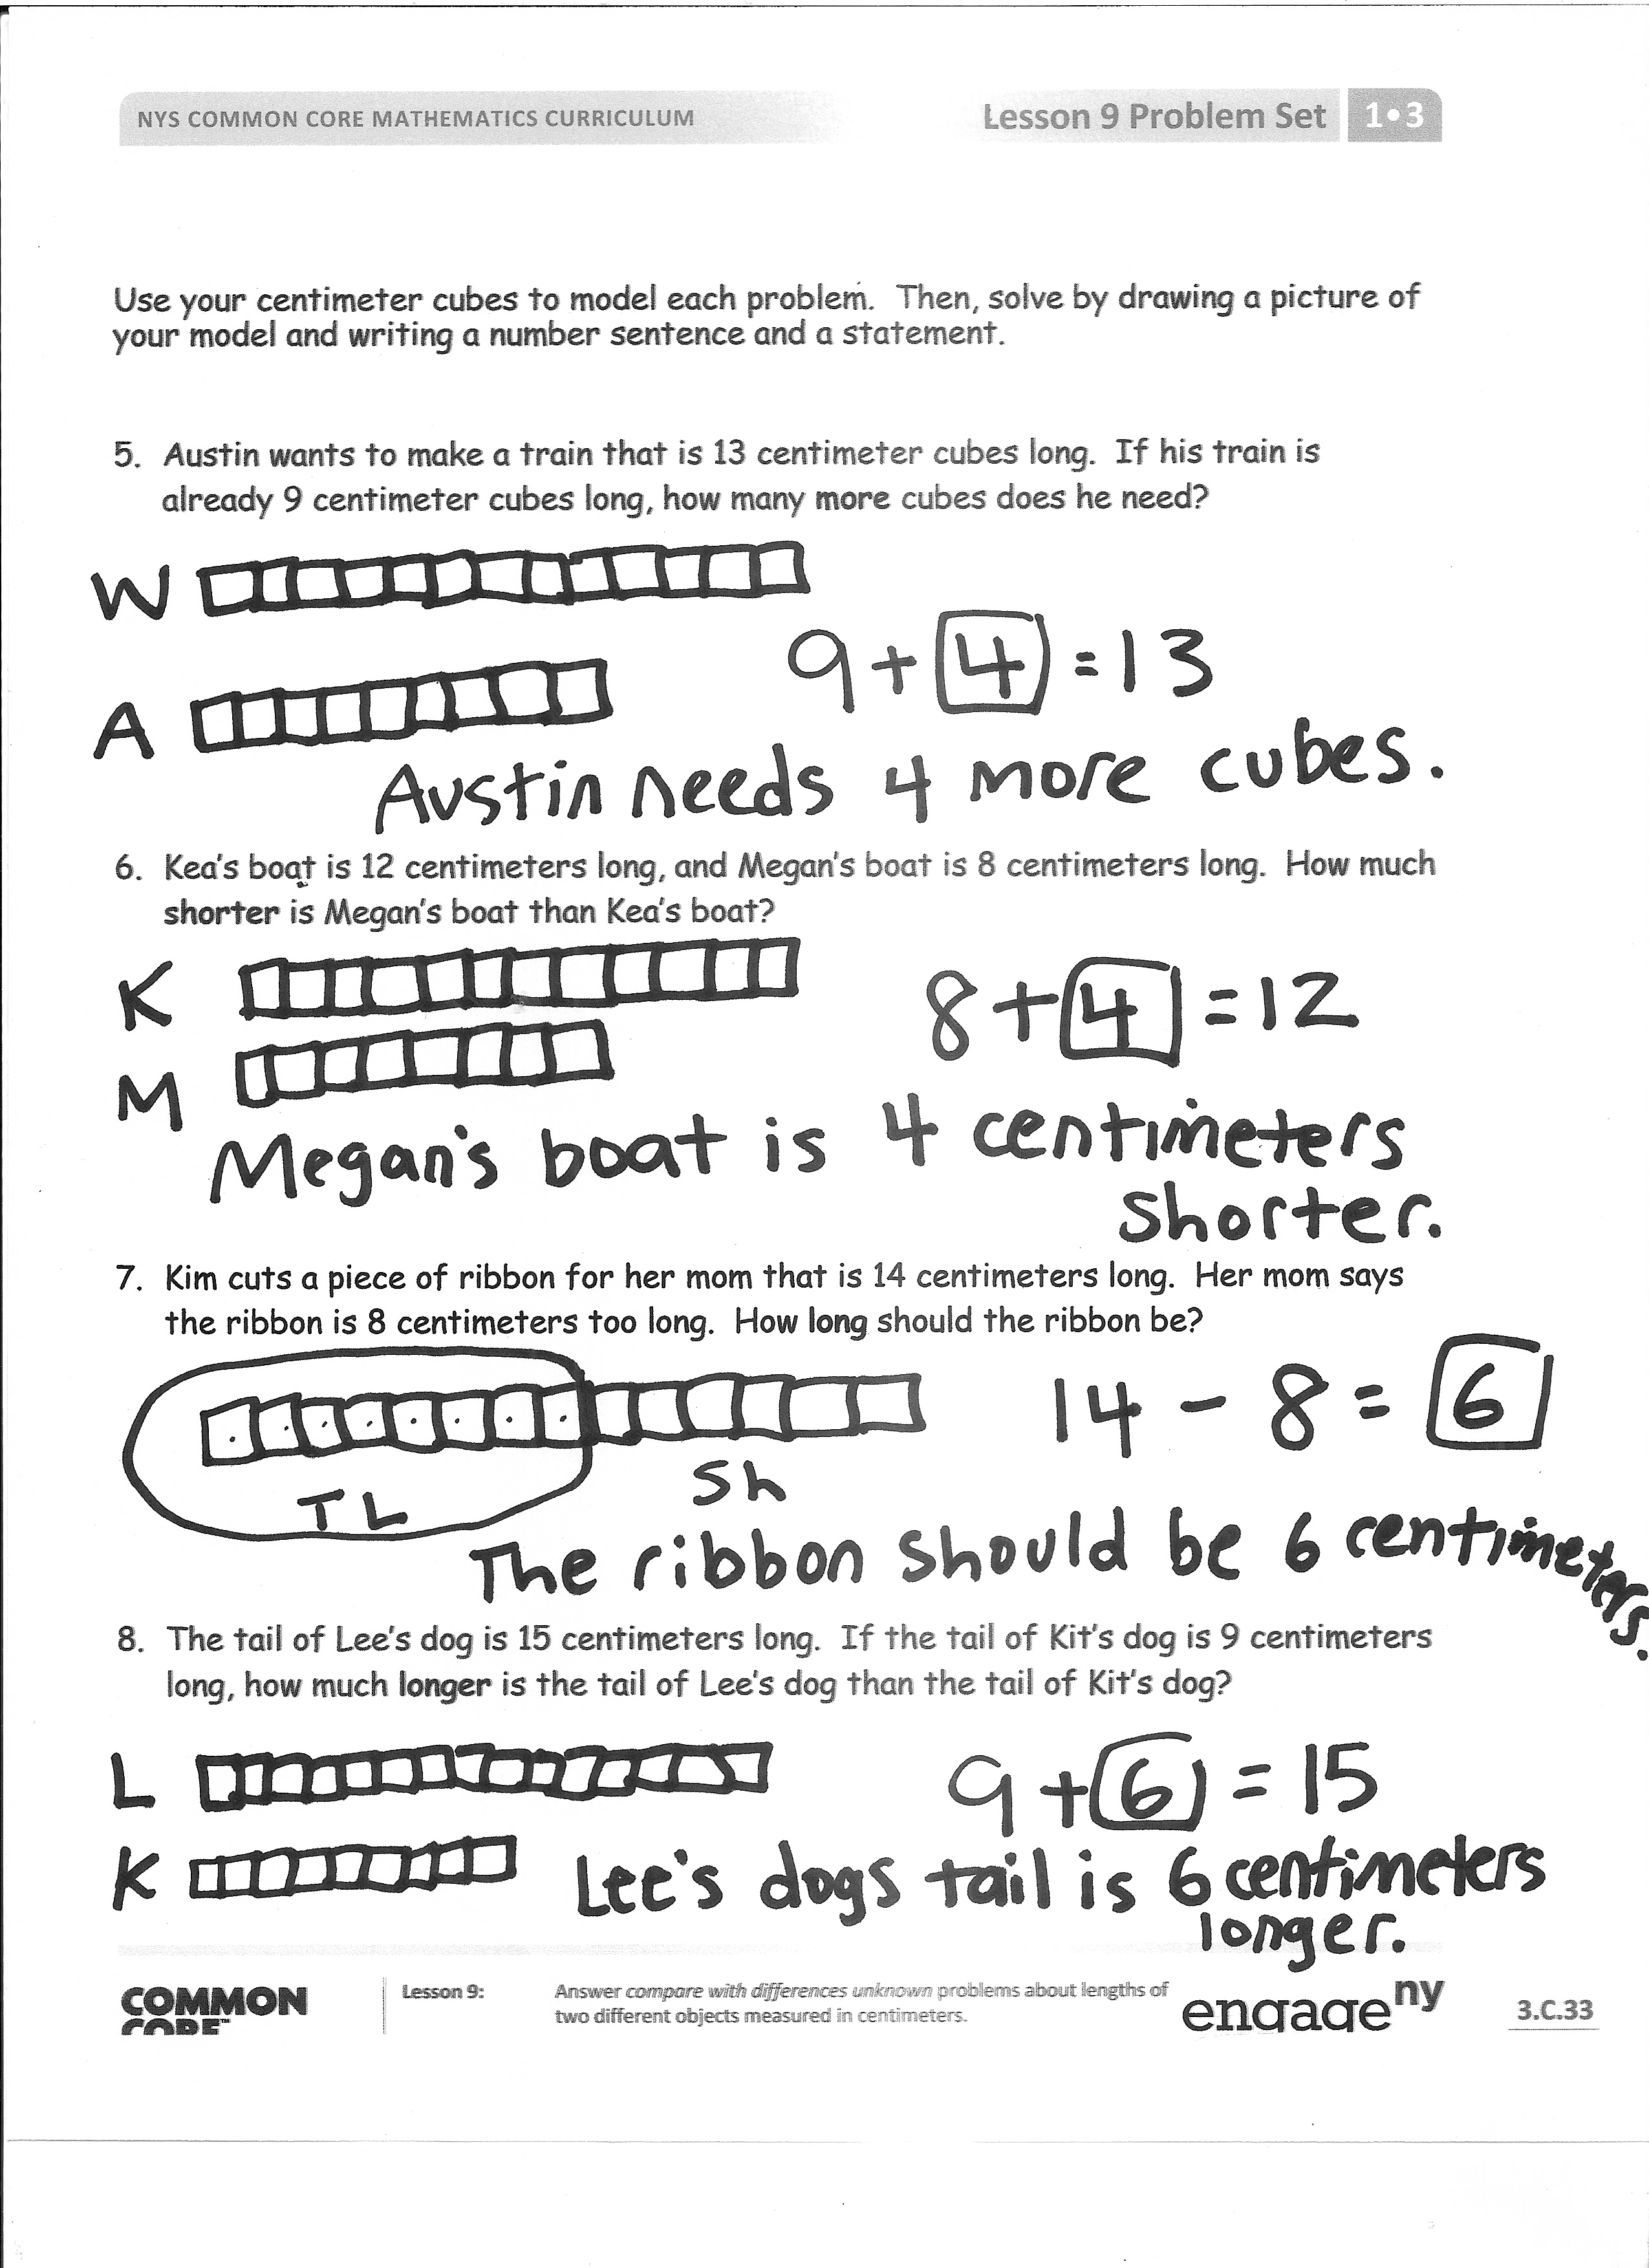 NYS COMMON CORE MATHEMATICS CURRICULUM Lesson 9 Problem Set 1•3
Use your centimeter cubes to model each problem. Then, solve by drawing a picture of
your model and writing a number sentence and a statement.
5. Austin wants to make a train that is 13 centimeter cubes long. If his train is
already 9 centimeter cubes long, how many more cubes does he need?
W
9 + 4 = 13
A
Austin needs 4 more cubes.
6. Kea's boat is 12 centimeters long, and Megan's boat is 8 centimeters long. How much
shorter is Megan's boat than Kea's boat?
K
8 + 4 = 12
M
Megan's boat is 4 centimeters
shorter.
7. Kim cuts a piece of ribbon for her mom that is 14 centimeters long. Her mom says
the ribbon is 8 centimeters too long. How long should the ribbon be?
14 - 8 = 6
TL Sh
The ribbon should be 6 centimeters.
8. The tail of Lee's dog is 15 centimeters long. If the tail of Kit's dog is 9 centimeters
long, how much longer is the tail of Lee's dog than the tail of Kit's dog?
L 9 + 6 = 15
K Lee's dogs tail is 6 centimeters
longer.
COMMON
CORE™
Lesson 9: Answer compare with differences unknown problems about lengths of
two different objects measured in centimeters.
engageny
3.C.33